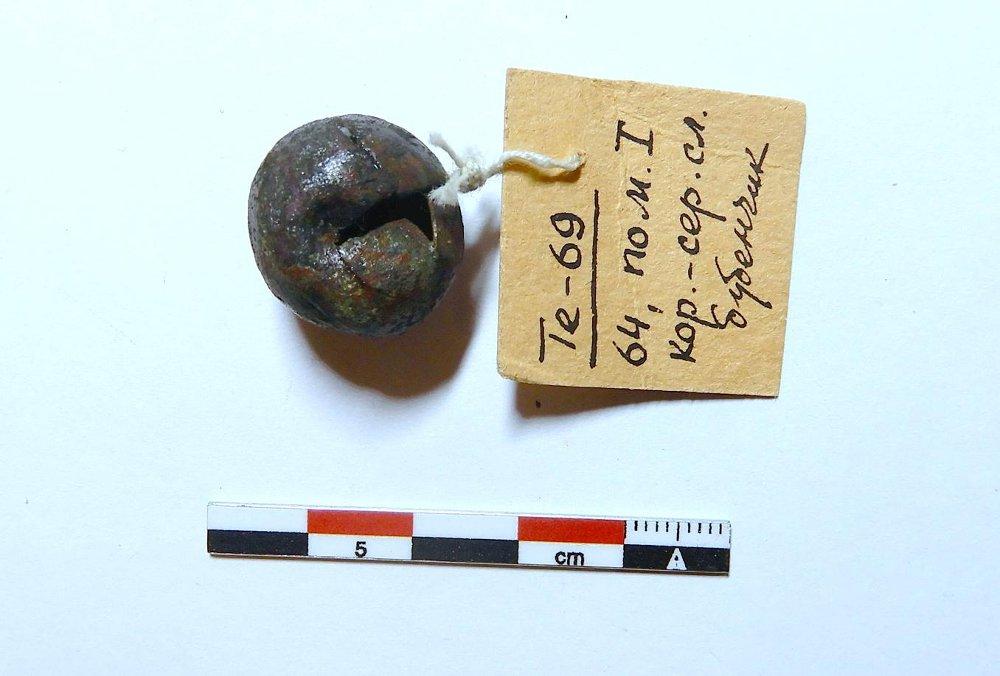 Те-69
64, пом. I
кор.-сер. сл.
бубенчик
5 cm